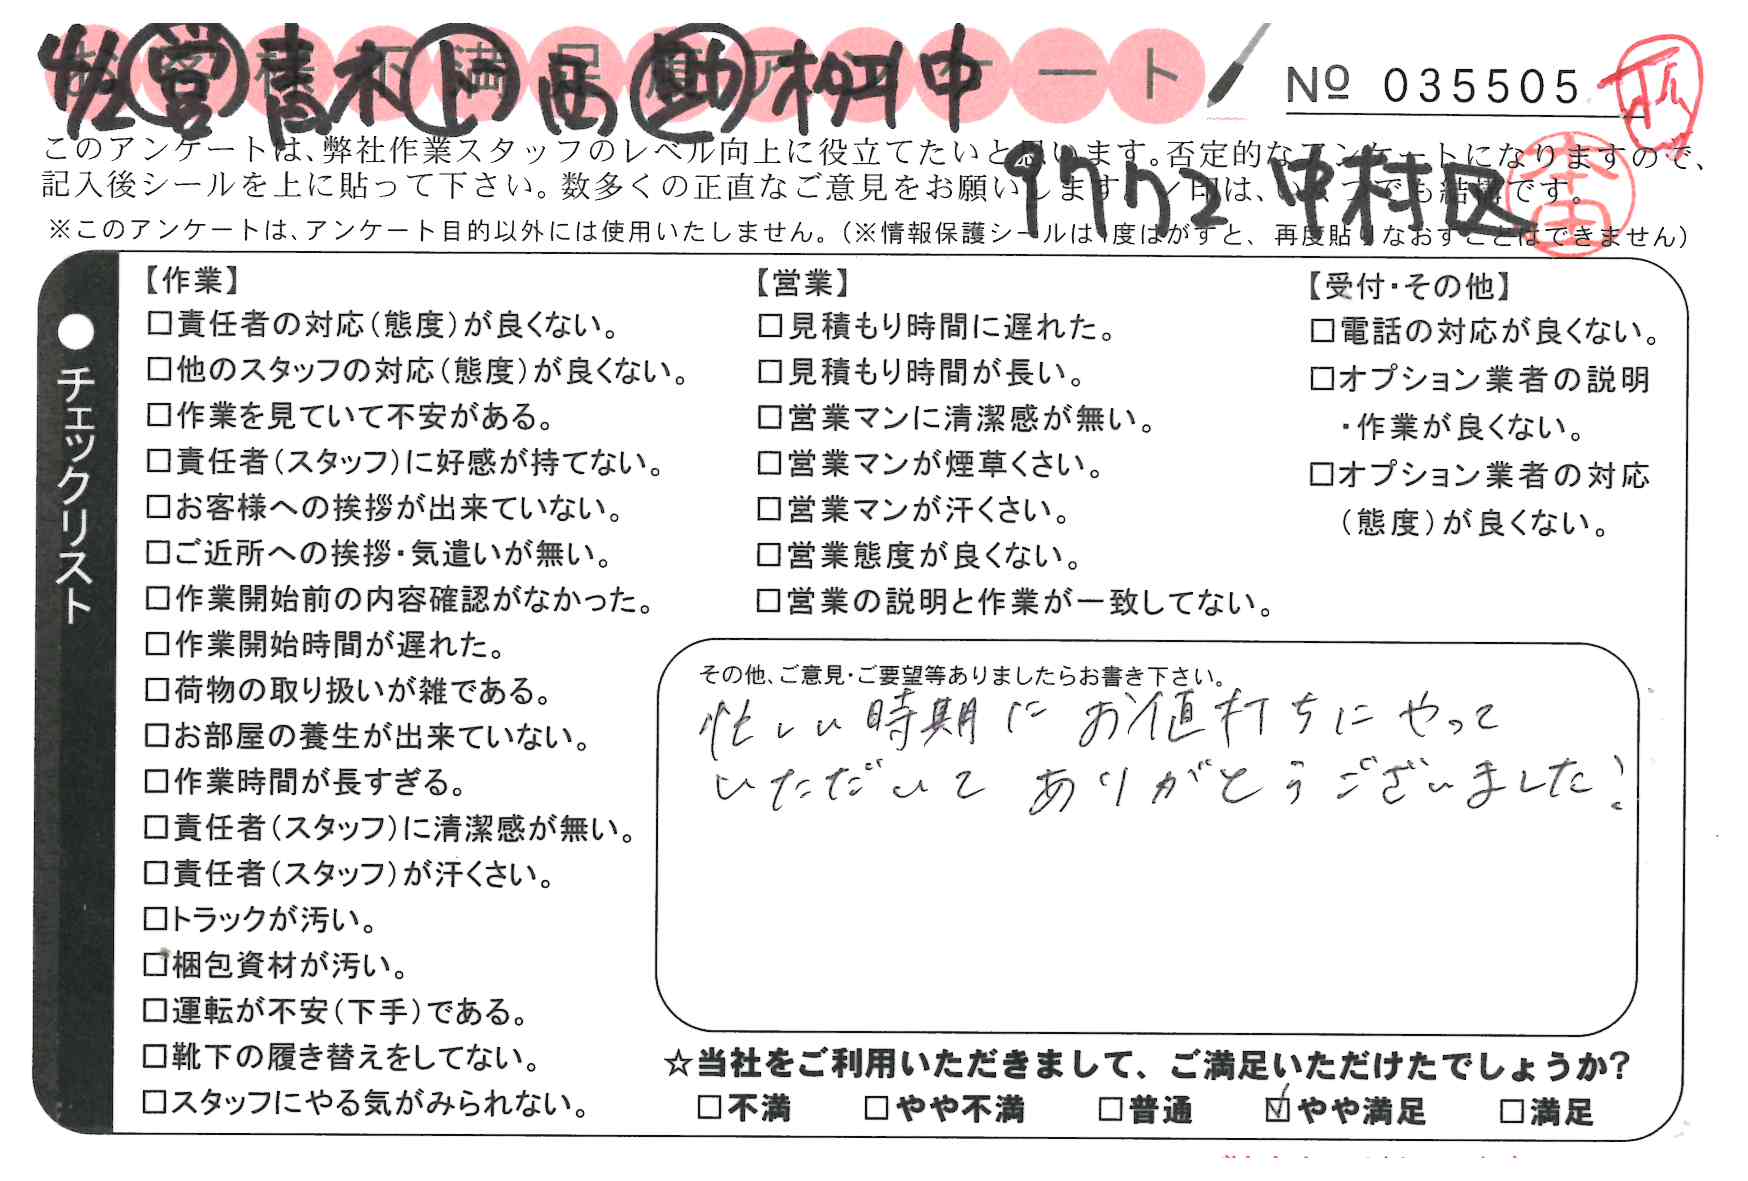 お客様不満足度アンケート
佐 営 青木 上 西 助 柳 中
№ 035505
このアンケートは、弊社作業スタッフのレベル向上に役立てたいと思います。否定的なアンケートになりますので、
記入後シールを上に貼って下さい。数多くの正直なご意見をお願いします。✓印は、いくつでも結構です。
中村区
本田
※このアンケートは、アンケート目的以外には使用いたしません。（※情報保護シールは1度はがすと、再度貼りなおすことはできません）
●チェックリスト
【作業】
□責任者の対応（態度）が良くない。
□他のスタッフの対応（態度）が良くない。
□作業を見ていて不安がある。
□責任者（スタッフ）に好感が持てない。
□お客様への挨拶が出来ていない。
□ご近所への挨拶・気遣いが無い。
□作業開始前の内容確認がなかった。
□作業開始時間が遅れた。
□荷物の取り扱いが雑である。
□お部屋の養生が出来ていない。
□作業時間が長すぎる。
□責任者（スタッフ）に清潔感が無い。
□責任者（スタッフ）が汗くさい。
□トラックが汚い。
□梱包資材が汚い。
□運転が不安（下手）である。
□靴下の履き替えをしてない。
□スタッフにやる気がみられない。
【営業】
□見積もり時間に遅れた。
□見積もり時間が長い。
□営業マンに清潔感が無い。
□営業マンが煙草くさい。
□営業マンが汗くさい。
□営業態度が良くない。
□営業の説明と作業が一致してない。
【受付・その他】
□電話の対応が良くない。
□オプション業者の説明
・作業が良くない。
□オプション業者の対応
（態度）が良くない。
その他、ご意見・ご要望等ありましたらお書き下さい。
忙しい時期に お値打ちにやって
いただいて ありがとうございました！
☆当社をご利用いただきまして、ご満足いただけたでしょうか？
□不満 □やや不満 □普通 ☑やや満足 □満足